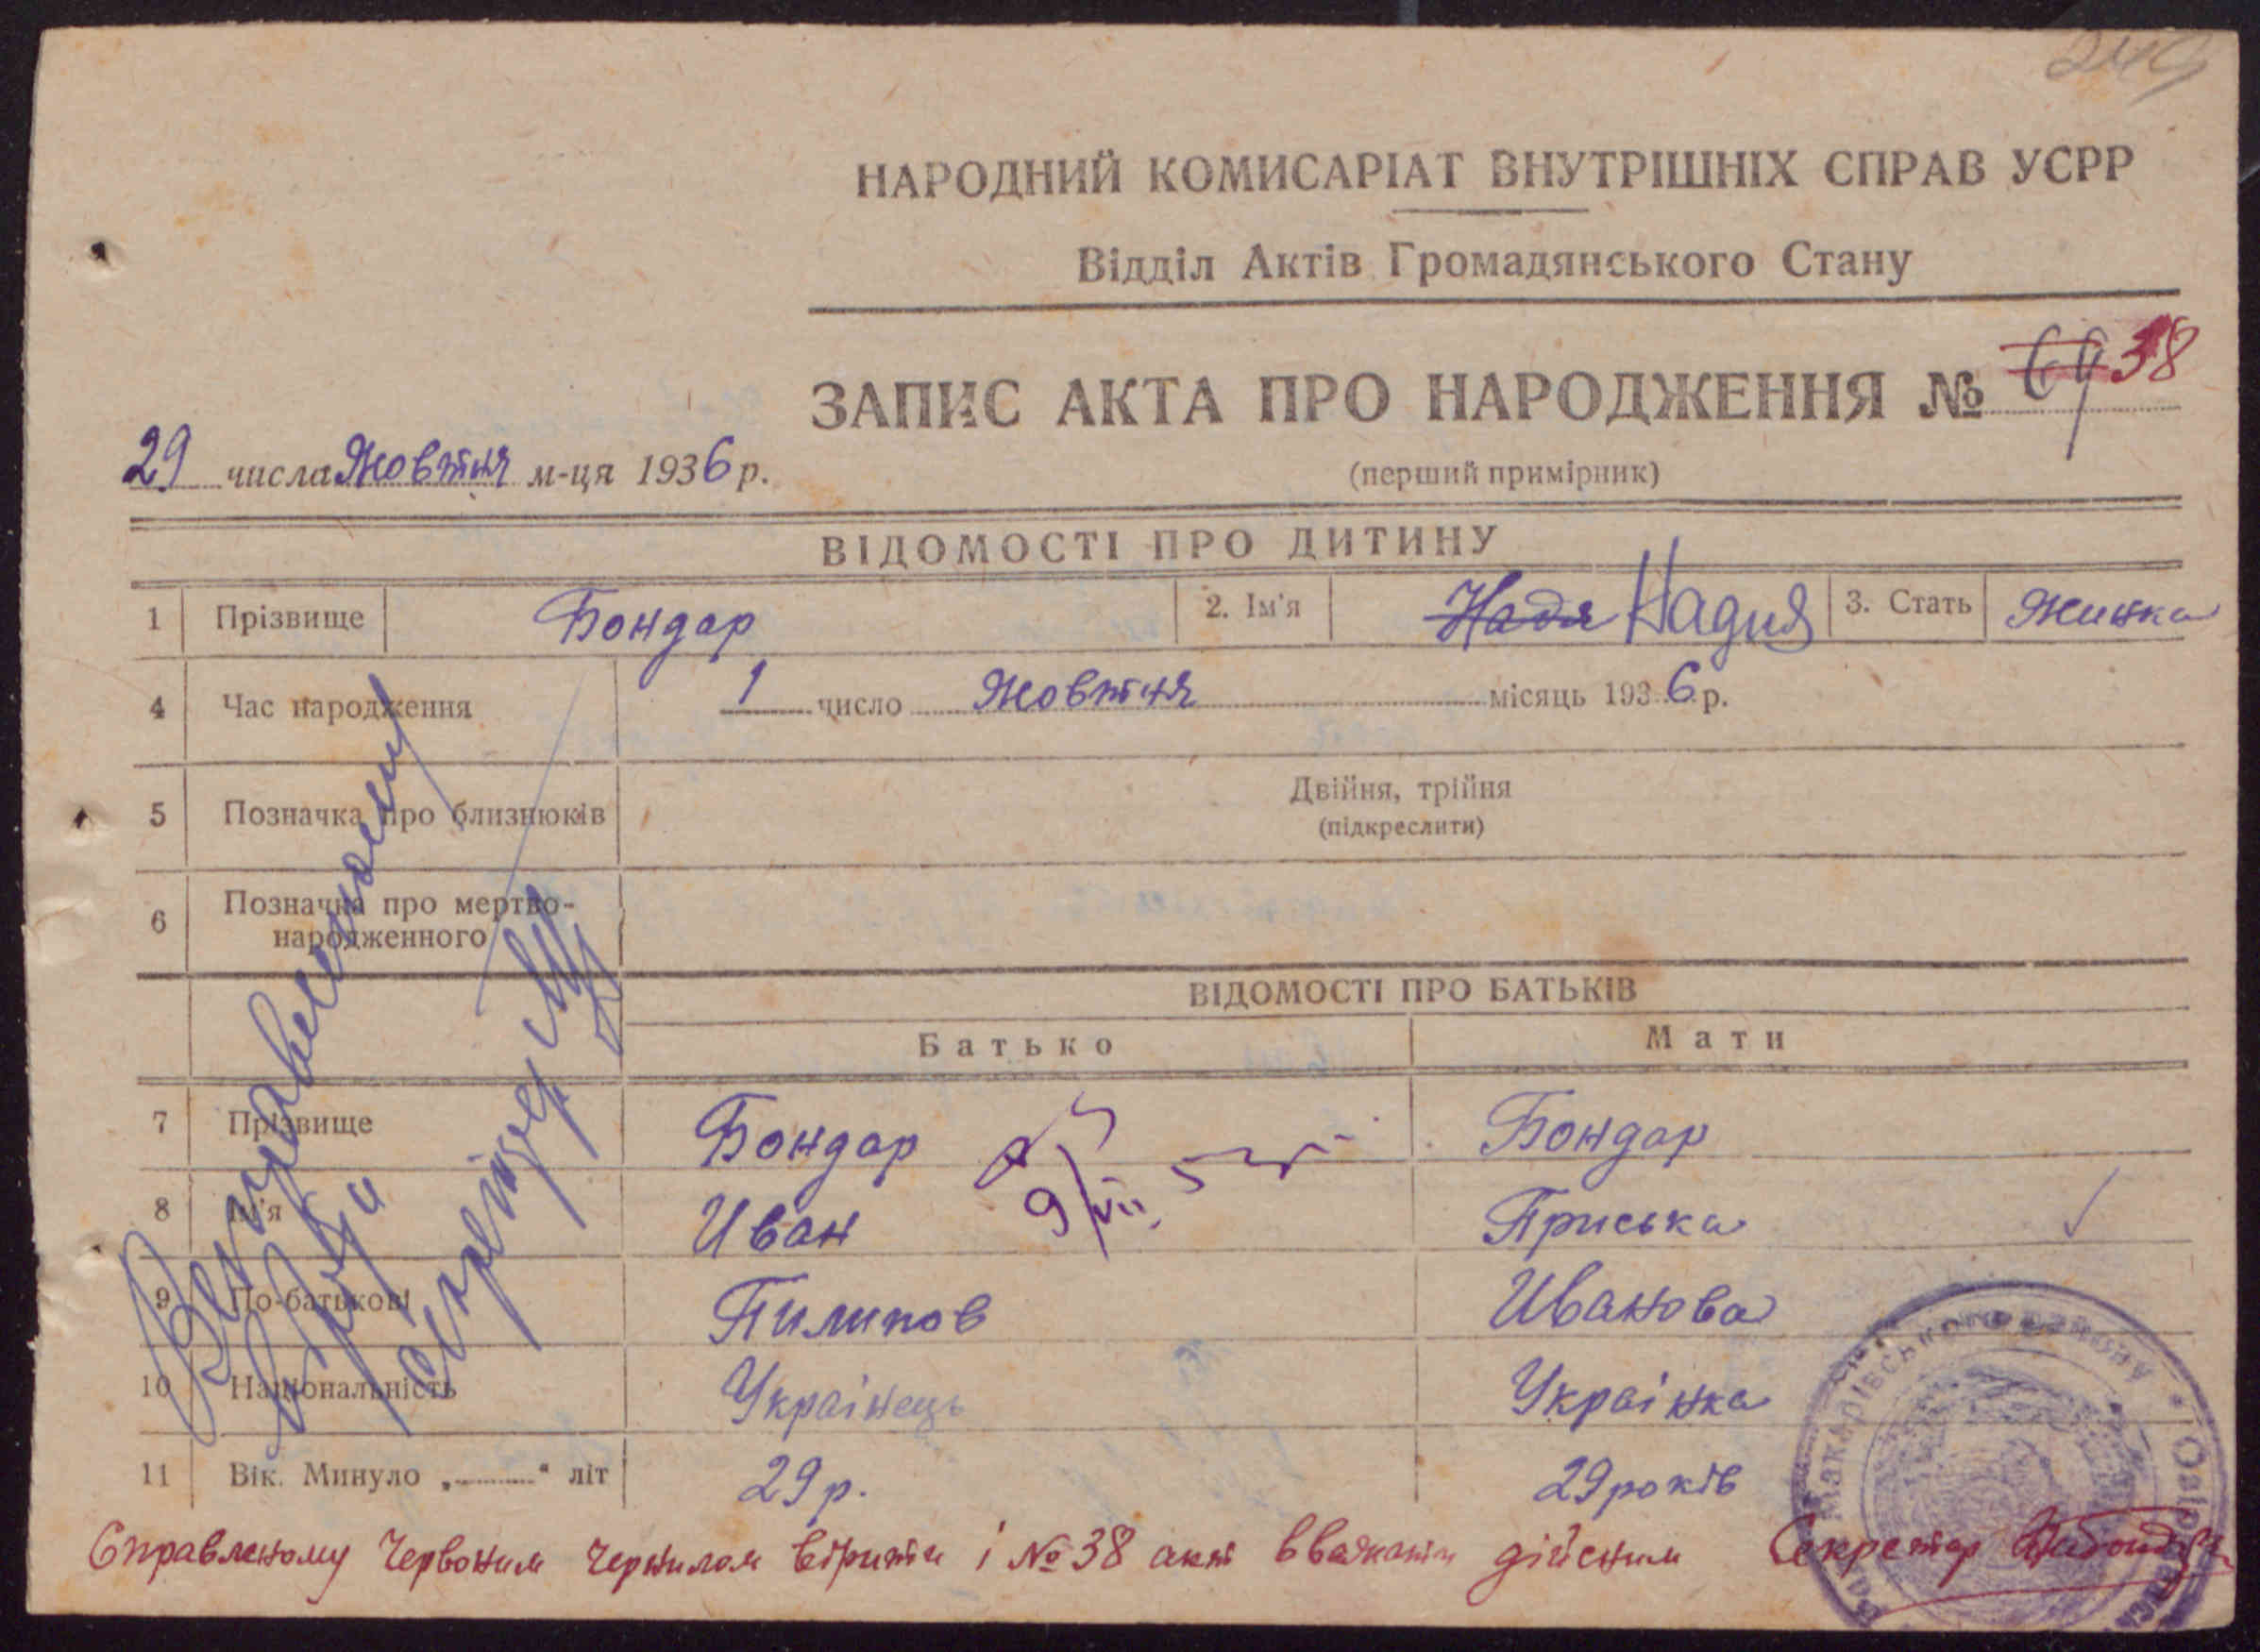 НАРОДНИЙ КОМИСАРІАТ ВНУТРІШНІХ СПРАВ УСРР
Відділ Актів Громадянського Стану
ЗАПИС АКТА ПРО НАРОДЖЕННЯ № 69 38
29 числа Жовтня м-ця 1936 р.
(перший примірник)
ВІДОМОСТІ ПРО ДИТИНУ
1 Прізвище Бондар 2. Ім'я Надя Надия 3. Стать Жинка
4 Час народження 1 число Жовтня місяць 1936 р.
5 Позначка про близнюків Двійня, трійня
(підкреслити)
6 Позначка про мертво-
народженного
ВІДОМОСТІ ПРО БАТЬКІВ
Батько Мати
7 Прізвище Бондар Бондар
8 Ім'я Иван Приська
9 По-батькові Пилипов Иванова
10 Національність Українець Українка
11 Вік. Минуло „ “ літ 29 р. 29 років
Справленому Червоним чернилом вірити і № 38 акт вважати дійсним Секретар